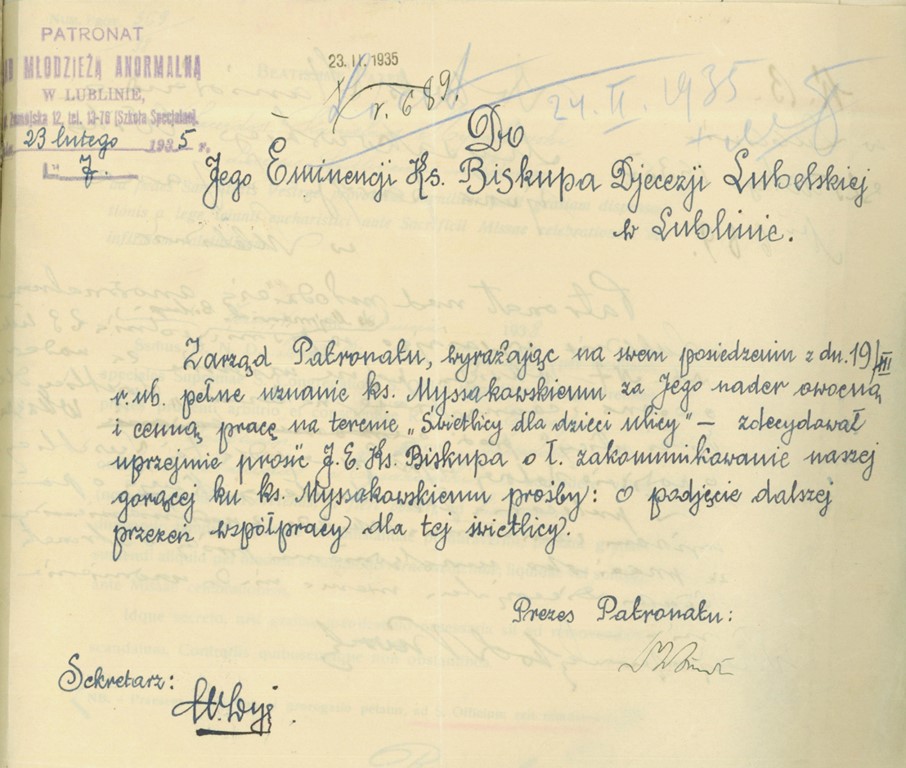 PATRONAT
MŁODZIEŻĄ ANORMALNĄ
W LUBLINIE,
12, tel. 13-76 (Szkoła Specjalna).
23 lutego 1935 r.
L. 7.
23. II. 1935
r. 689.
24. II. 1935
Do
Jego Eminencji Ks. Biskupa Djecezji Lubelskiej
w Lublinie.
Zarząd Patronatu, wyrażając na swem posiedzeniu z dn. 19/XII
r. ub. pełne uznanie ks. Myssakowskiemu za Jego nader owocną
i cenną pracę na terenie „Świetlicy dla dzieci ulicy" – zdecydował
uprzejmie prosić J. E. Ks. Biskupa o ł. zakomunikowanie naszej
gorącej ku ks. Myssakowskiemu prośby: o podjęcie dalszej
przezeń współpracy dla tej świetlicy.
Prezes Patronatu:
Sekretarz: